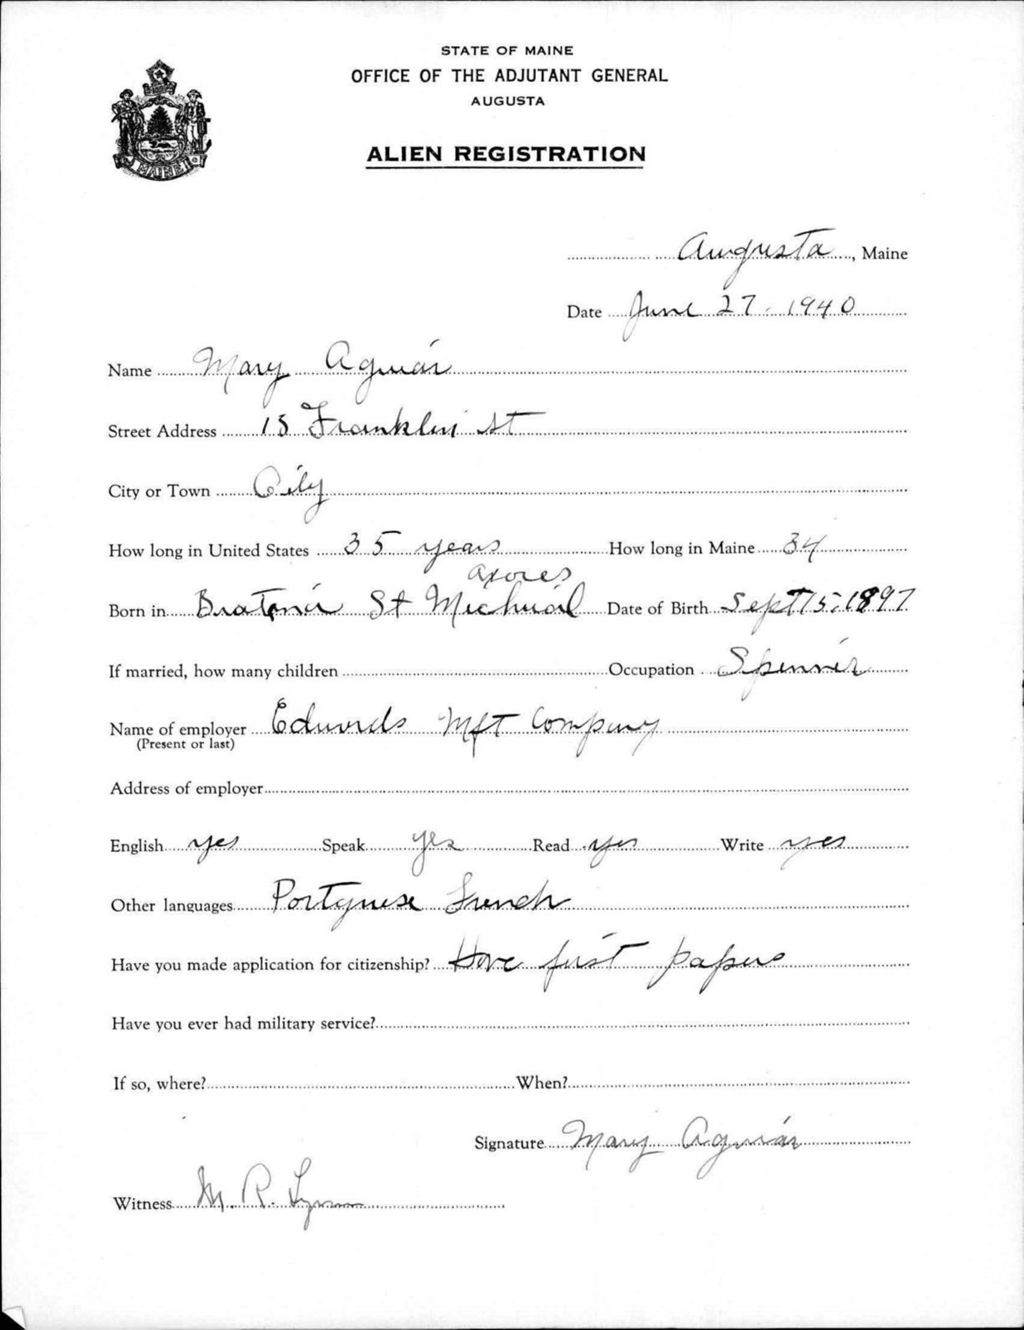 STATE OF MAINE
OFFICE OF THE ADJUTANT GENERAL
AUGUSTA
ALIEN REGISTRATION
MAINE
Augusta, Maine
Date June 27, 1940
Name Mary Aguiar
Street Address 18 Franklin St
City or Town City
How long in United States 35 years How long in Maine 34
Azores
Born in St Michael Date of Birth Sept 15, 1897
If married, how many children Occupation Spinner
Name of employer Edwards Mft Company
(Present or last)
Address of employer
English yes Speak yes Read yes Write yes
Other languages Portguese French
Have you made application for citizenship? Have first papers
Have you ever had military service?
If so, where? When?
Signature Mary Aguiar
Witness M. R. Lynn